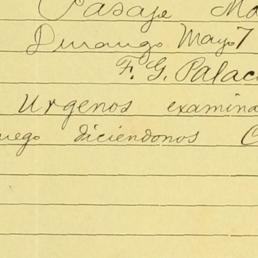 Pasaje Ma
Durango Mayo 7
F. G. Palac
Urgenos examina
uego diciendonos C